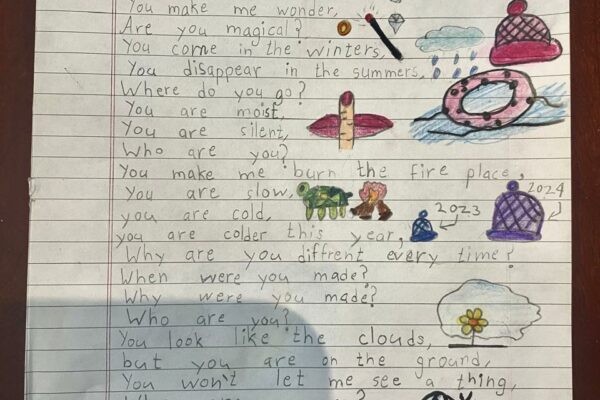 You make me wonder,
Are you magical?
You come in the winters,
You disappear in the summers,
Where do you go?
You are moist,
You are silent,
Who are you?
You make me burn the fire place,
You are slow,
you are cold,
you are colder this year,
2023
2024
Why are you diffrent every time?
When were you made?
Why were you made?
Who are you?
You look like the clouds,
but you are on the ground,
You won't let me see a thing,